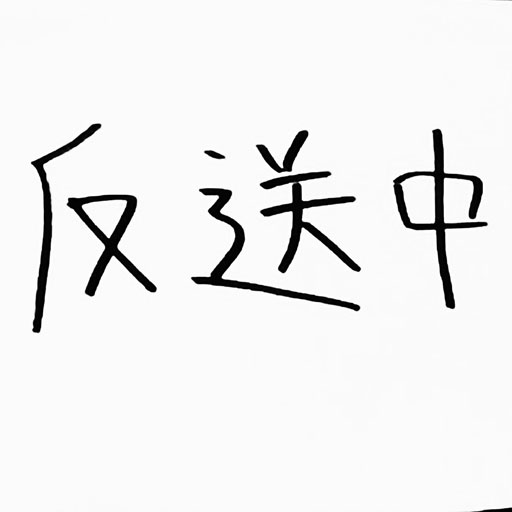 反送中